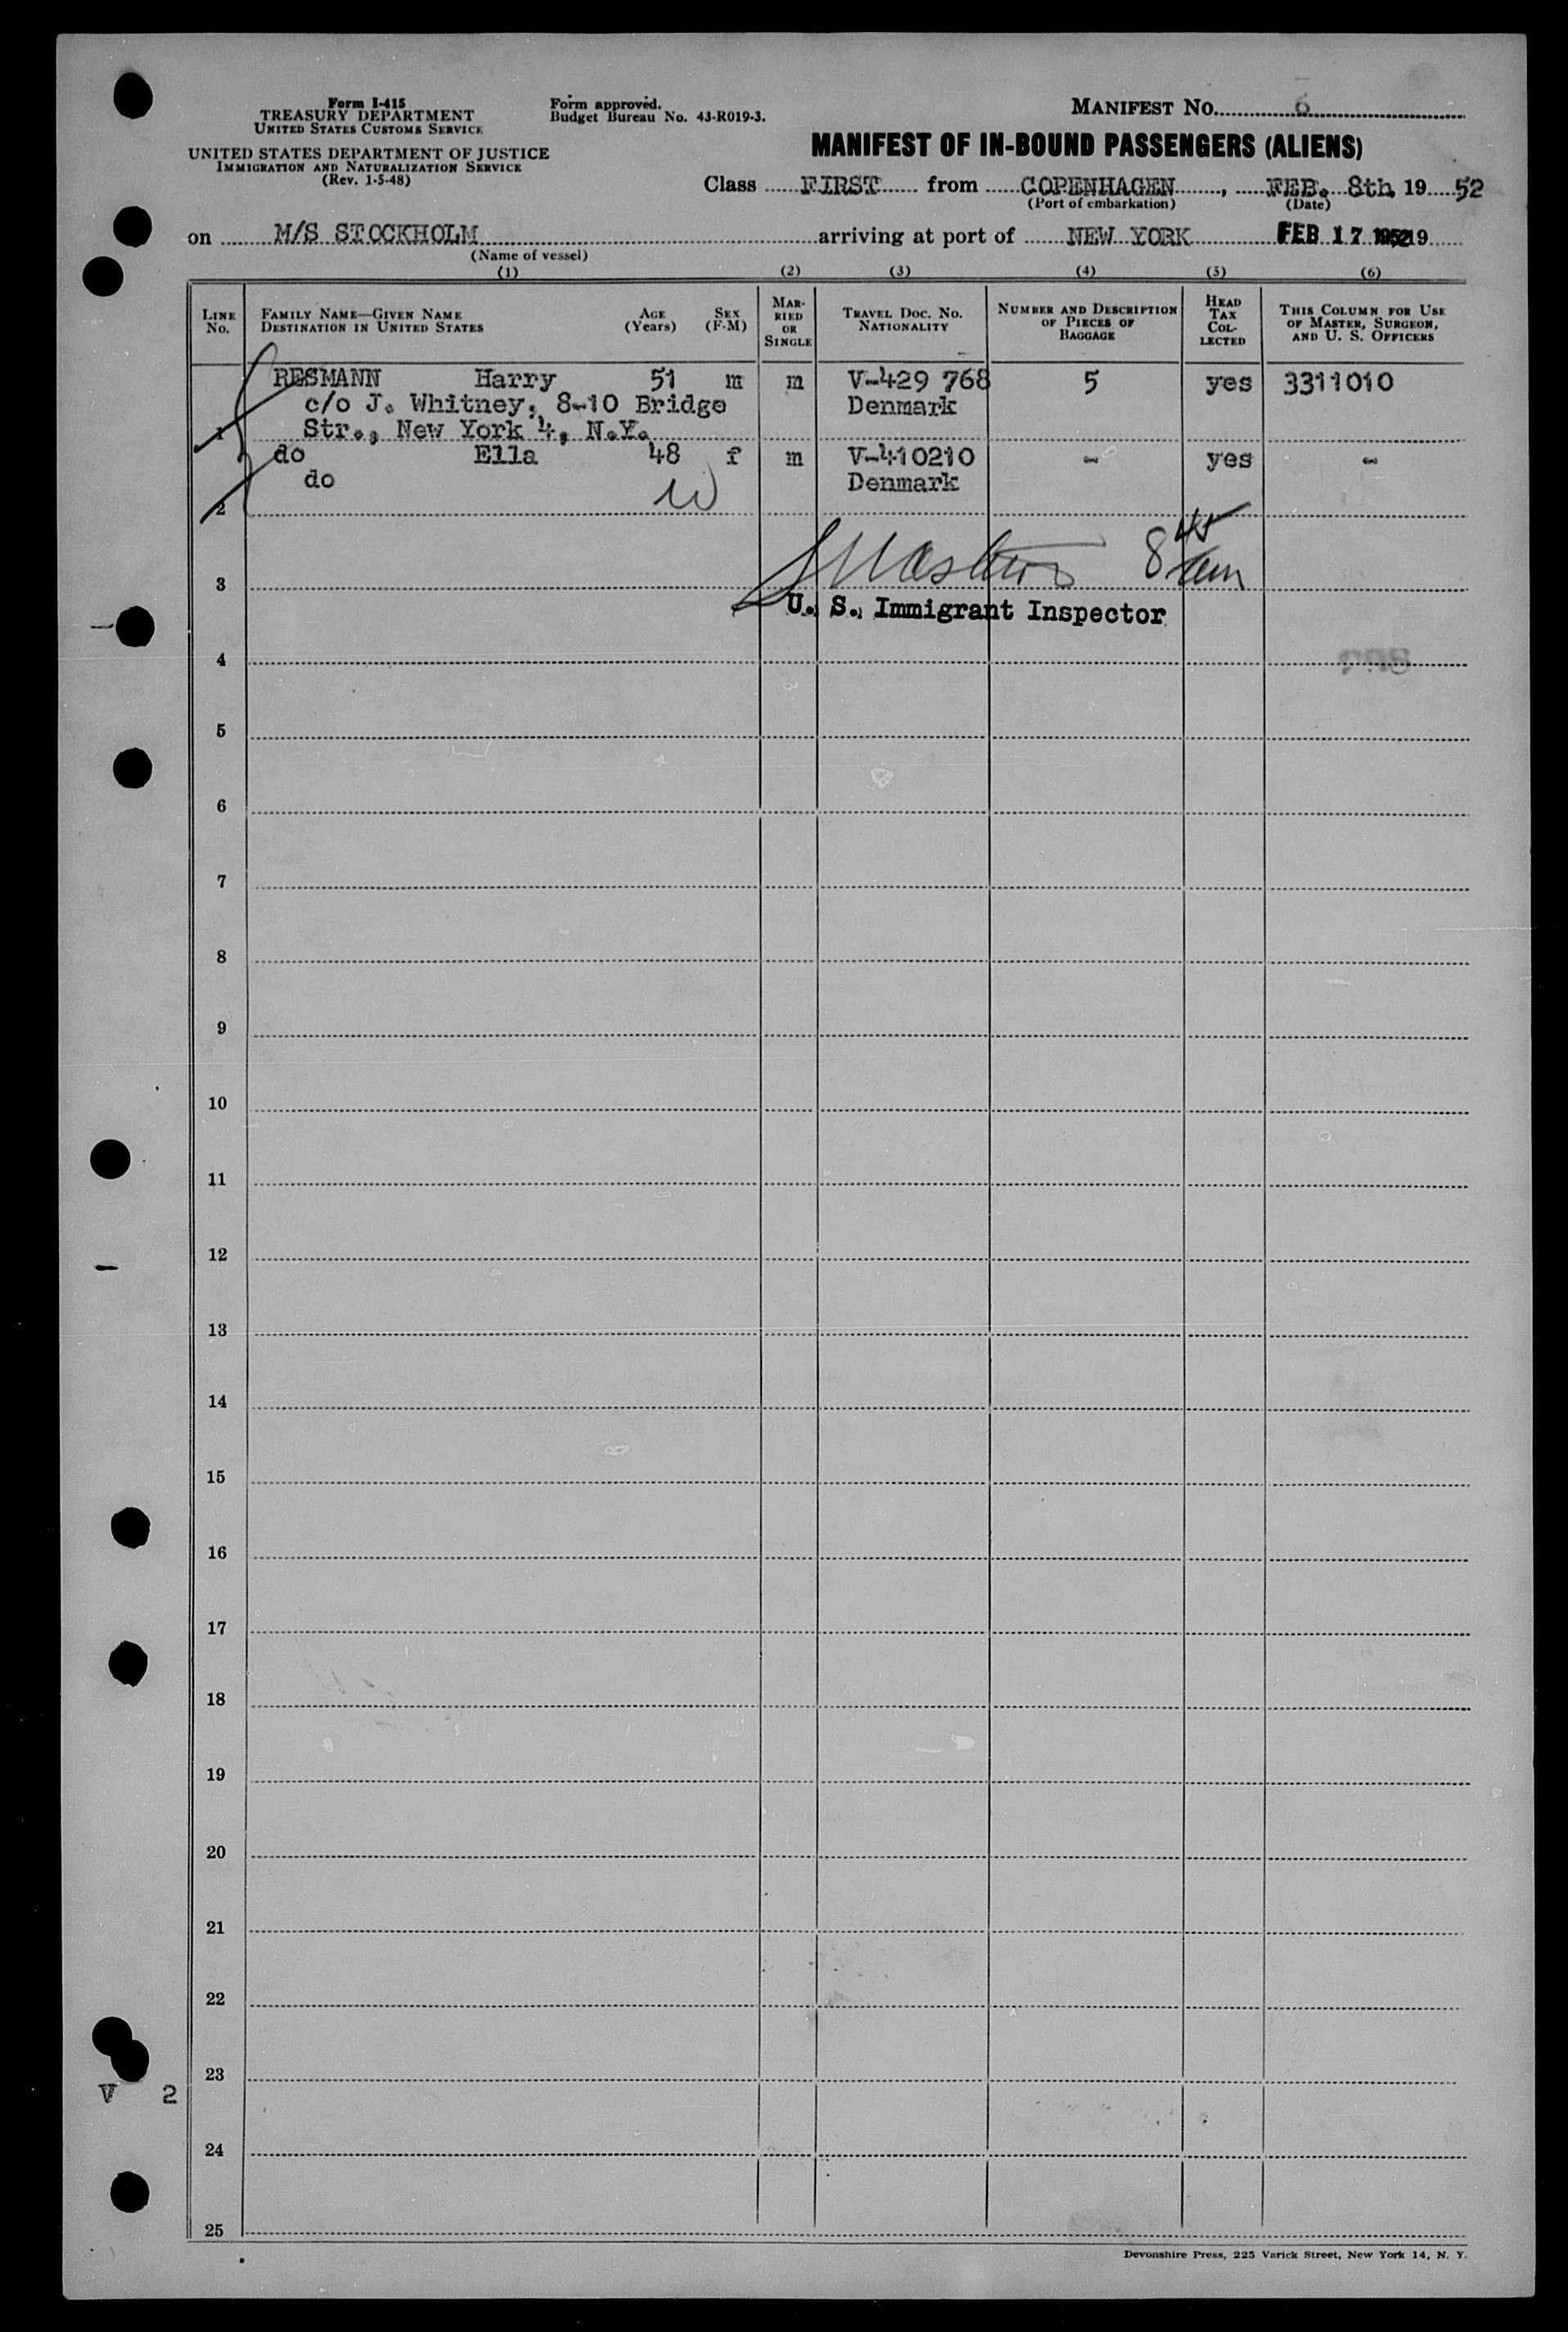 Form I-415
TREASURY DEPARTMENT
UNITED STATES CUSTOMS SERVICE
UNITED STATES DEPARTMENT OF JUSTICE
IMMIGRATION AND NATURALIZATION SERVICE
(Rev. 1-5-48)
Form approved.
Budget Bureau No. 43-R019-3.
MANIFEST NO. 6
MANIFEST OF IN-BOUND PASSENGERS (ALIENS)
Class FIRST from COPENHAGEN, FEB. 8th 19 52
(Port of embarkation) (Date)
on M/S STOCKHOLM arriving at port of NEW YORK FEB 17 1952 19
(Name of vessel)
(1) (2) (3) (4) (5) (6)
LINE No. FAMILY NAME—GIVEN NAME DESTINATION IN UNITED STATES AGE (Years) SEX (F-M) MARRIED OR SINGLE TRAVEL DOC. NO. NATIONALITY NUMBER AND DESCRIPTION OF PIECES OF BAGGAGE HEAD TAX COLLECTED THIS COLUMN FOR USE OF MASTER, SURGEON, AND U. S. OFFICERS
RESMANN Harry 51 m m V-429 768 5 yes 3311010
c/o J. Whitney, 8-10 Bridge Denmark
1 Str., New York 4, N.Y.
do Ella 48 f m V-410210 - yes -
do Denmark
2
8 45 am
3
U. S. Immigrant Inspector
4
5
6
7
8
9
10
11
12
13
14
15
16
17
18
19
20
21
22
23
V 2
24
25
Devonshire Press, 225 Varick Street, New York 14, N. Y.